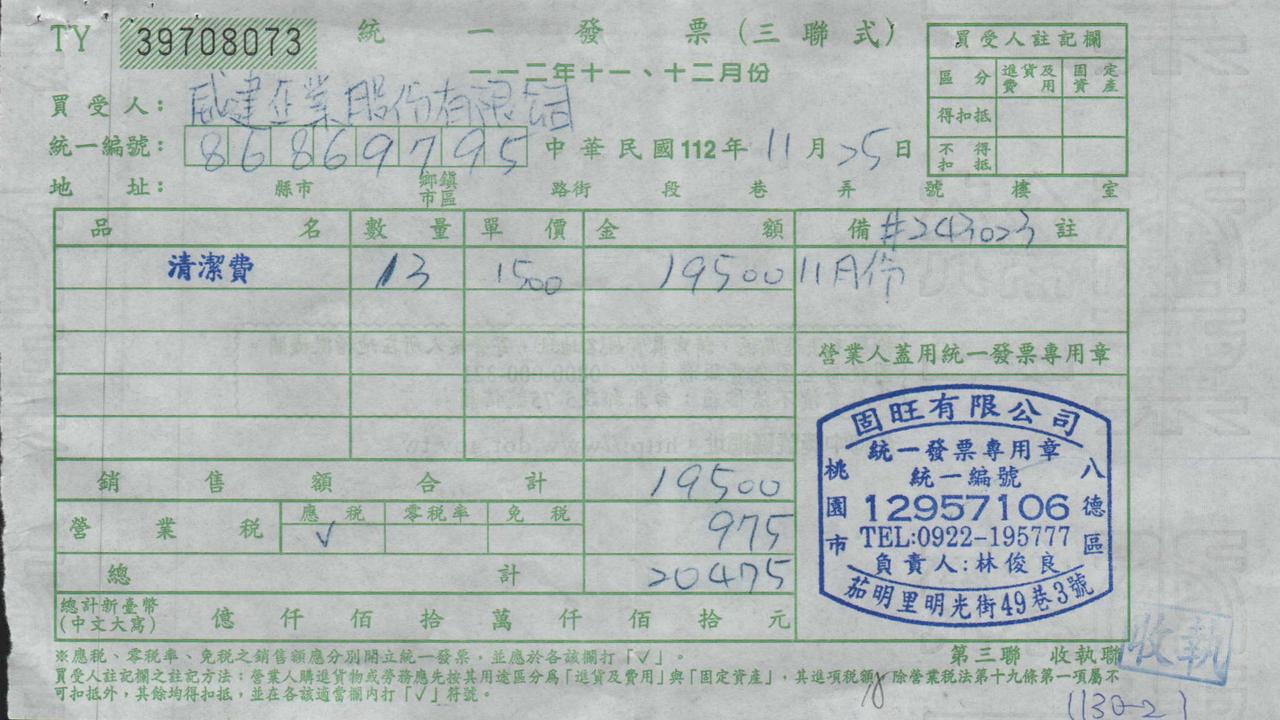 TY 39708073 統一發票(三聯式)
一一二年十一、十二月份
買受人註記欄
區分 進貨及費用 固定資產
得扣抵
不得扣抵
買受人：威建企業股份有限公司
統一編號：86869795 中華民國112年11月25日
地址： 縣市 鄉鎮市區 路街 段 巷 弄 號 樓 室
品名 數量 單價 金額 備註 #243023
清潔費 13 1500 19500 11月份
營業人蓋用統一發票專用章
銷售額合計 19500
營業稅 應稅 零稅率 免稅 975
√
總計 20475
總計新臺幣(中文大寫) 億 仟 佰 拾 萬 仟 佰 拾 元
固旺有限公司
統一發票專用章
統一編號
12957106
TEL:0922-195777
負責人:林俊良
桃園市
八德區
茄明里明光街49巷3號
※應稅、零稅率、免稅之銷售額應分別開立統一發票，並應於各該欄打「√」。
第三聯 收執聯
收執
買受人註記欄之註記方法：營業人購進貨物或勞務應先按其用途區分為「進貨及費用」與「固定資產」，其進項稅額，除營業稅法第十九條第一項屬不
可扣抵外，其餘均得扣抵，並在各該適當欄內打「√」符號。
(130-2)